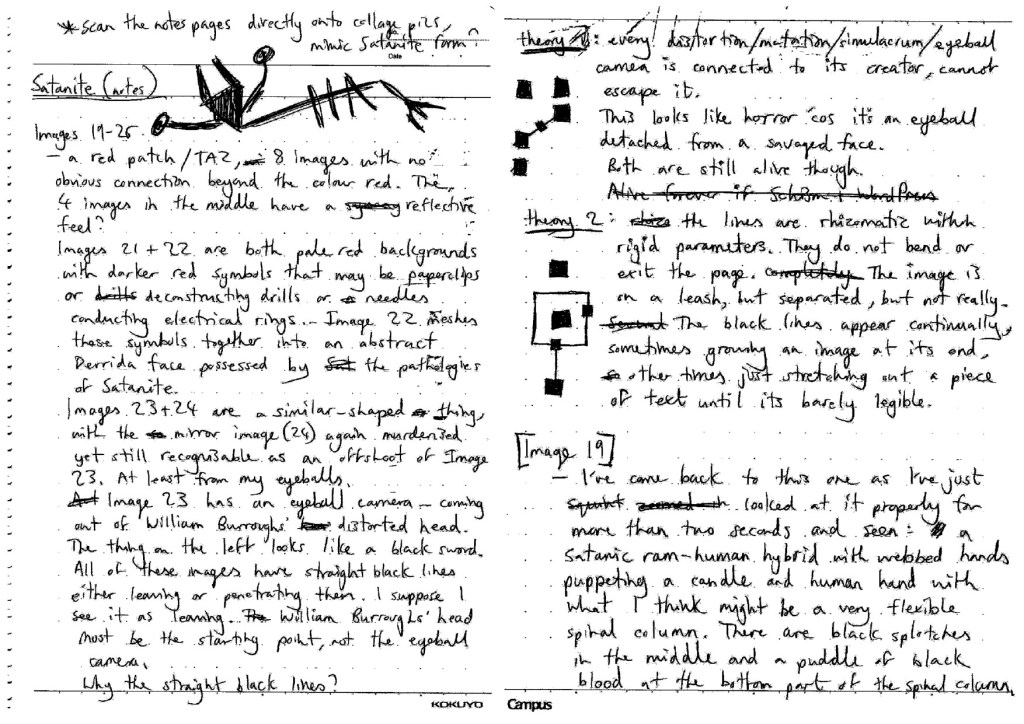 * Scan the notes pages directly onto collage pics,
mimic Satanite form?
Date
Satanite (notes)
Images 19-25
- a red patch / TAZ, 8 images with no
obvious connection beyond the colour red. The
4 images in the middle have a reflective
feel?
Images 21 + 22 are both pale red backgrounds
with darker red symbols that may be paperclips
or drills deconstructing drills or needles
conducting electrical rings - Image 22 meshes
these symbols together into an abstract
Derrida face possessed by Sat the pathologies
of Satanite.
Images 23+24 are a similar-shaped thing,
with the mirror image (24) again murderised
yet still recognisable as an offshoot of Image
23. At least from my eyeballs.
Image 23 has an eyeball camera - coming
out of William Burroughs' distorted head.
The thing on the left looks like a black sword.
All of these images have straight black lines
either leaving or penetrating them. I suppose I
see it as leaving. The William Burroughs' head
must be the starting point, not the eyeball
camera.
Why the straight black lines?
KOKUYO
theory 1: every distortion/mutation/simulacrum/eyeball
camera is connected to its creator, cannot
escape it.
This looks like horror cos it's an eyeball
detached from a savaged face.
Both are still alive though.
Alive forever if
theory 2: the lines are rhizomatic within
rigid parameters. They do not bend or
exit the page. completely The image is
on a leash, but separated, but not really.
Several The black lines appear continually,
sometimes growing an image at its end,
so other times just stretching out a piece
of text until its barely legible.
[Image 19]
- I've come back to this one as I've just
squint zoomed in looked at it properly for
more than two seconds and seen: a
Satanic ram-human hybrid with webbed hands
puppeting a candle and human hand with
what I think might be a very flexible
spinal column. There are black splotches
in the middle and a puddle of black
blood at the bottom part of the spinal column.
Campus